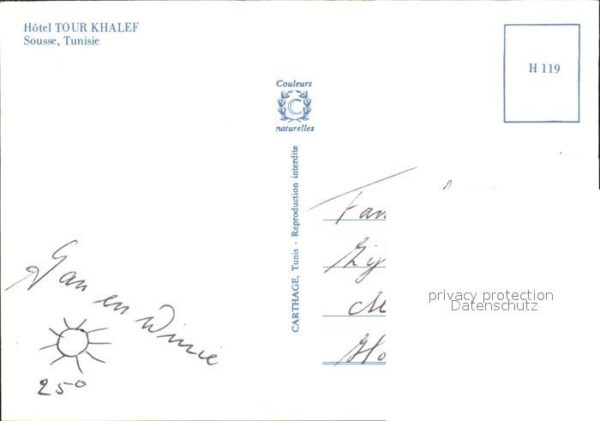 Hôtel TOUR KHALEF
Sousse, Tunisie
H 119
Couleurs
C
naturelles
CARTHAGE, Tunis - Reproduction interdite
Fam
Zij
Ho
privacy protection
Datenschutz
Jan en Winnie
25°